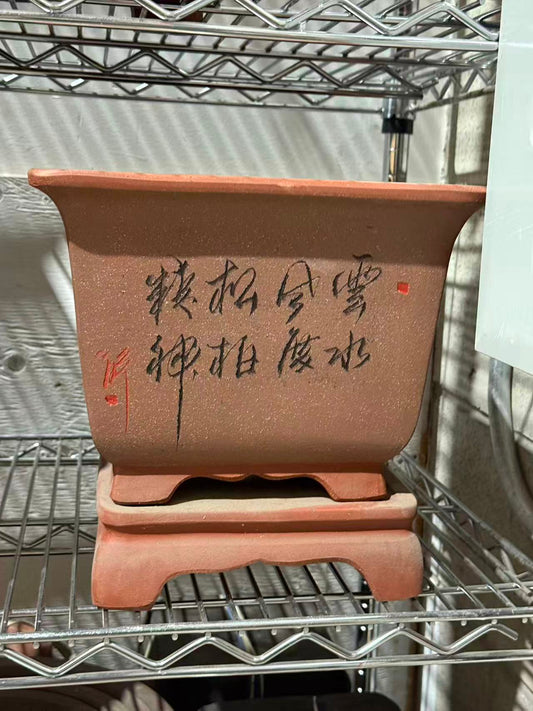 雲水
风度
松柏
精神